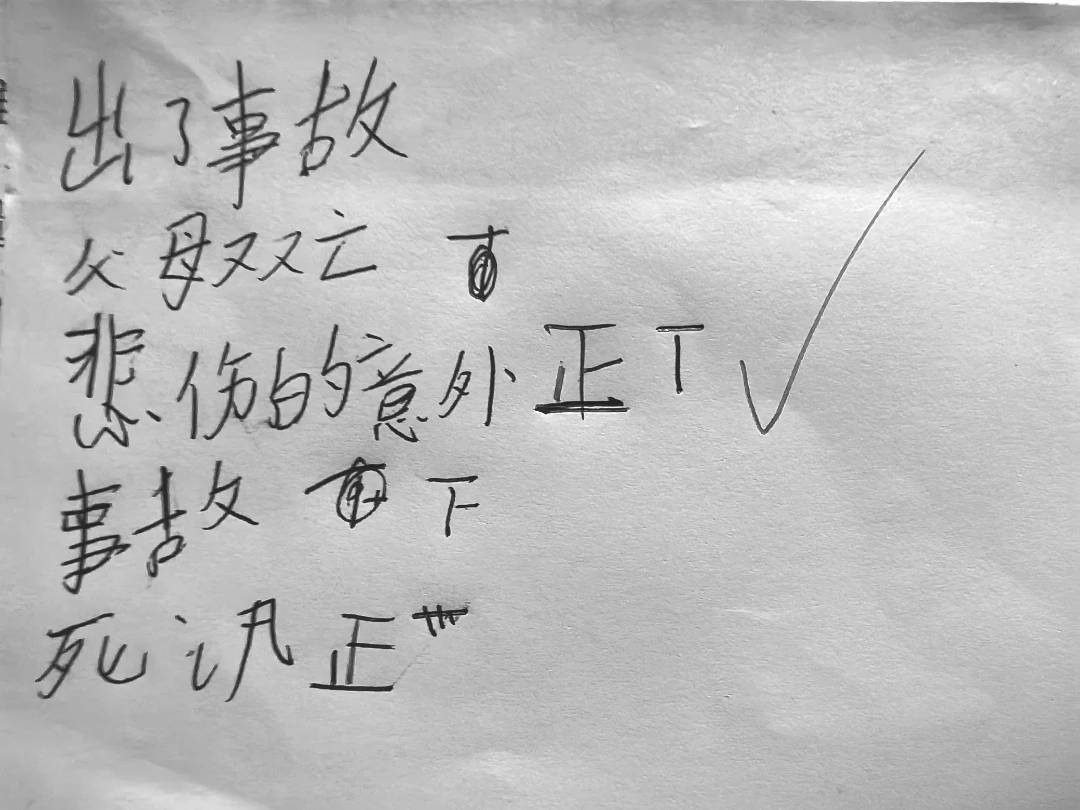 出了事故
父母双亡
悲伤的意外 正丅 ✓
事故 下
死讯 正